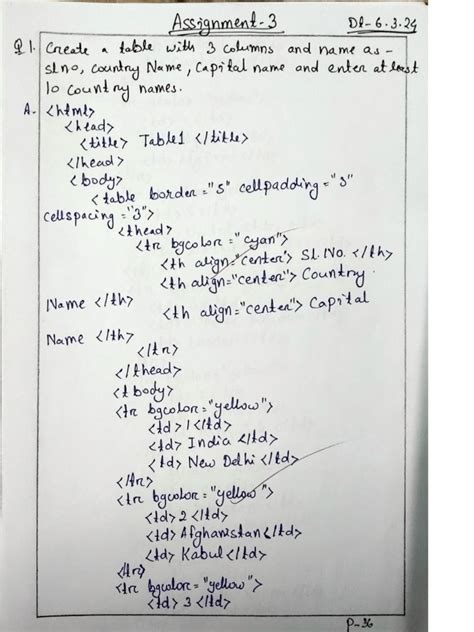 Assignment-3
Dt-6.3.24
Q1. Create a table with 3 columns and name as -
sl.no, Country Name, Capital name and enter at least
10 country names.
A. <html>
<head>
<title> Table1 </title>
</head>
<body>
<table border="5" cellpadding="5"
cellspacing="3">
<thead>
<tr bgcolor="cyan">
<th align="center"> Sl. No. </th>
<th align="center"> Country
Name </th>
<th align="center"> Capital
Name </th>
</tr>
</thead>
<tbody>
<tr bgcolor="yellow">
<td> 1 </td>
<td> India </td>
<td> New Delhi </td>
</tr>
<tr bgcolor="yellow">
<td> 2 </td>
<td> Afghanistan </td>
<td> Kabul </td>
</tr>
<tr bgcolor="yellow">
<td> 3 </td>
P-36